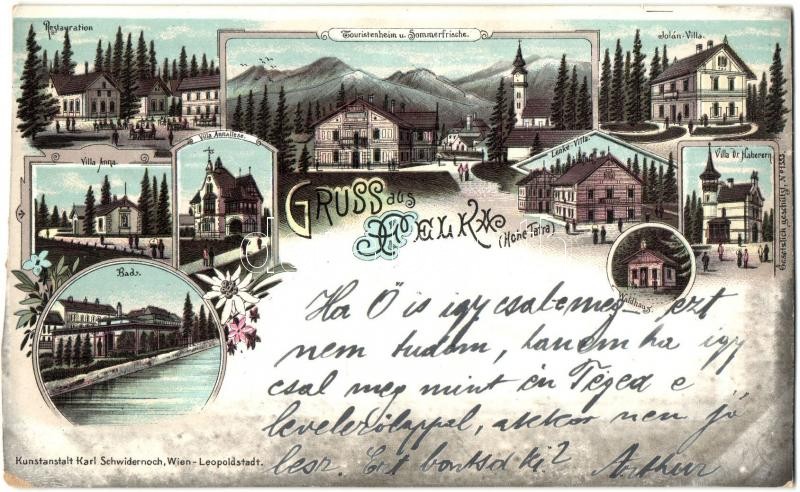 Restauration
Touristenheim u. Sommerfrische.
Jolán-Villa.
Villa Anna.
Villa Annaliese.
Lenke-Villa.
Villa Dr. Haberern
Gesetzlich geschützt, No 1553.
Bad.
Waldhaus
GRUSS aus
(Hohe Tatra)
Ha Ő is így csal meg — ezt
nem tudom, hanem ha így
csal meg mint én Téged e
levelezőlappal, akkor nem jó
lesz. Ezt bontsd ki? Arthur
Kunstanstalt Karl Schwidernoch, Wien-Leopoldstadt.